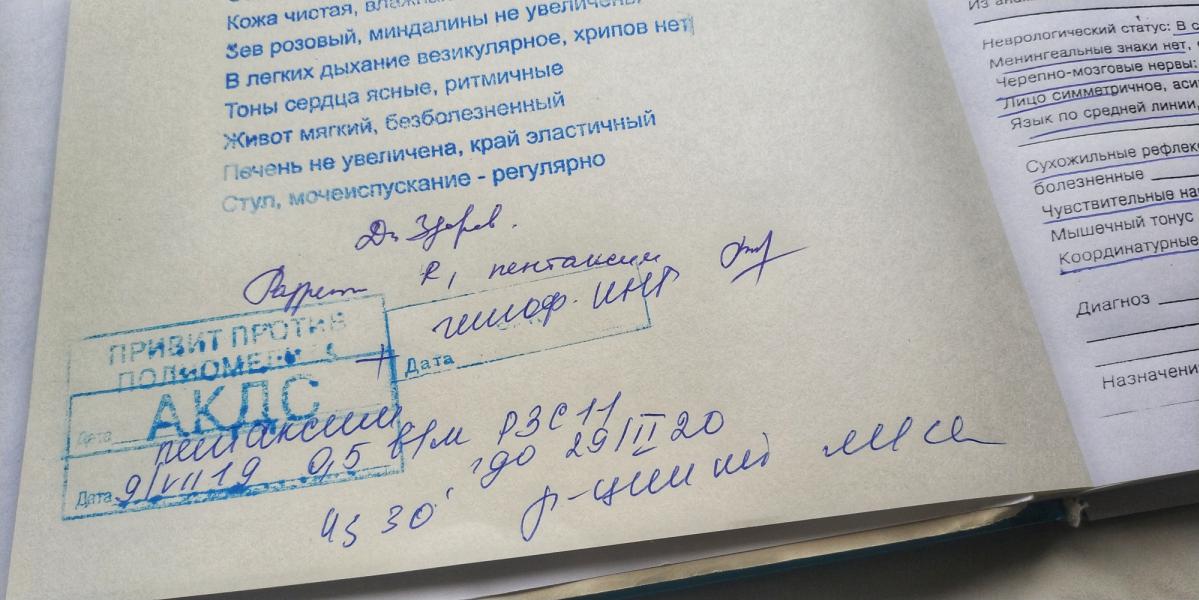 Кожа чистая, влажн
Зев розовый, миндалины не увеличены,
В легких дыхание везикулярное, хрипов нет
Тоны сердца ясные, ритмичные
Живот мягкий, безболезненный
Печень не увеличена, край эластичный
Стул, мочеиспускание - регулярно
Ds Здоров.
R1 пентаксим
ПРИВИТ ПРОТИВ
ПОЛИОМЕЛИ
+
Дата
АКДС
Дата
пентаксим
Дата 9/VII 19 0,5 в/м Р3С11
до 29/II 20
чз 30'
р-ции нет м/с
Из
Неврологический статус: В с
Менингеальные знаки нет,
Черепно-мозговые нервы:
Лицо симметричное, аси
Язык по средней линии,
Сухожильные рефлекс
болезненные
Чувствительные на
Мышечный тонус
Координатурные
Диагноз
Назначени